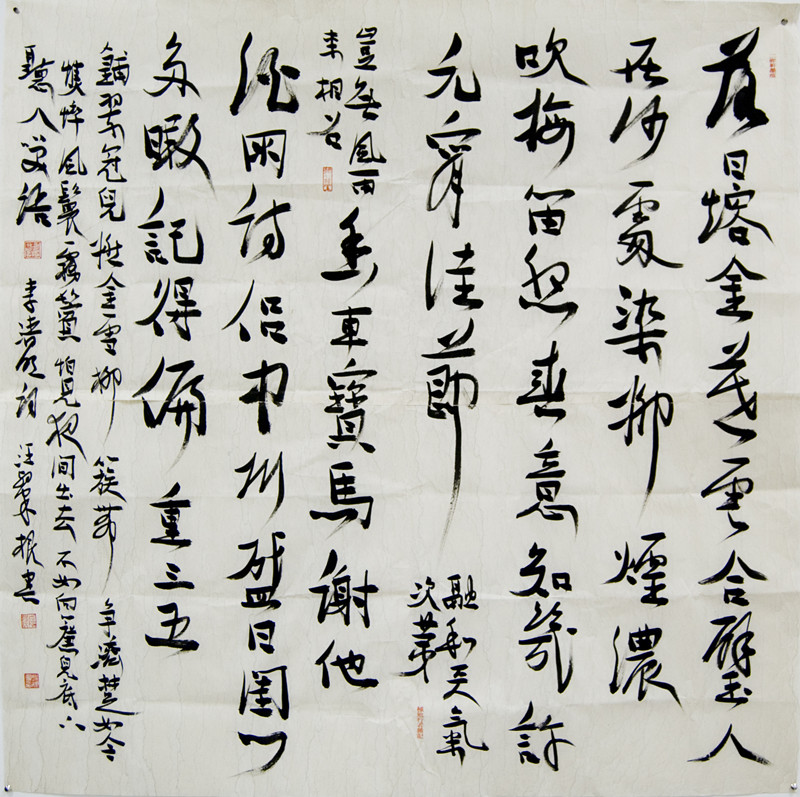 落日熔金暮雲合璧人
在何處染柳煙濃
吹梅笛怨春意知幾許
元宵佳節
融和天氣
次第
豈無風雨
來相召
香車寶馬謝他
酒朋詩侶中州盛日閨門
多暇記得偏重三五
鋪翠冠兒撚金雪柳簇帶爭濟楚如今
憔悴風鬟霧鬢怕見夜間出去不如向簾兒底下
聽人笑語 李清照詞 汪 根書